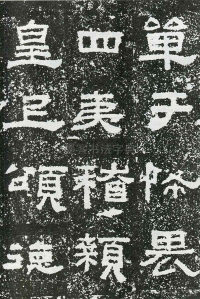 單于怖畏
四夷稽顙
皇上頌德